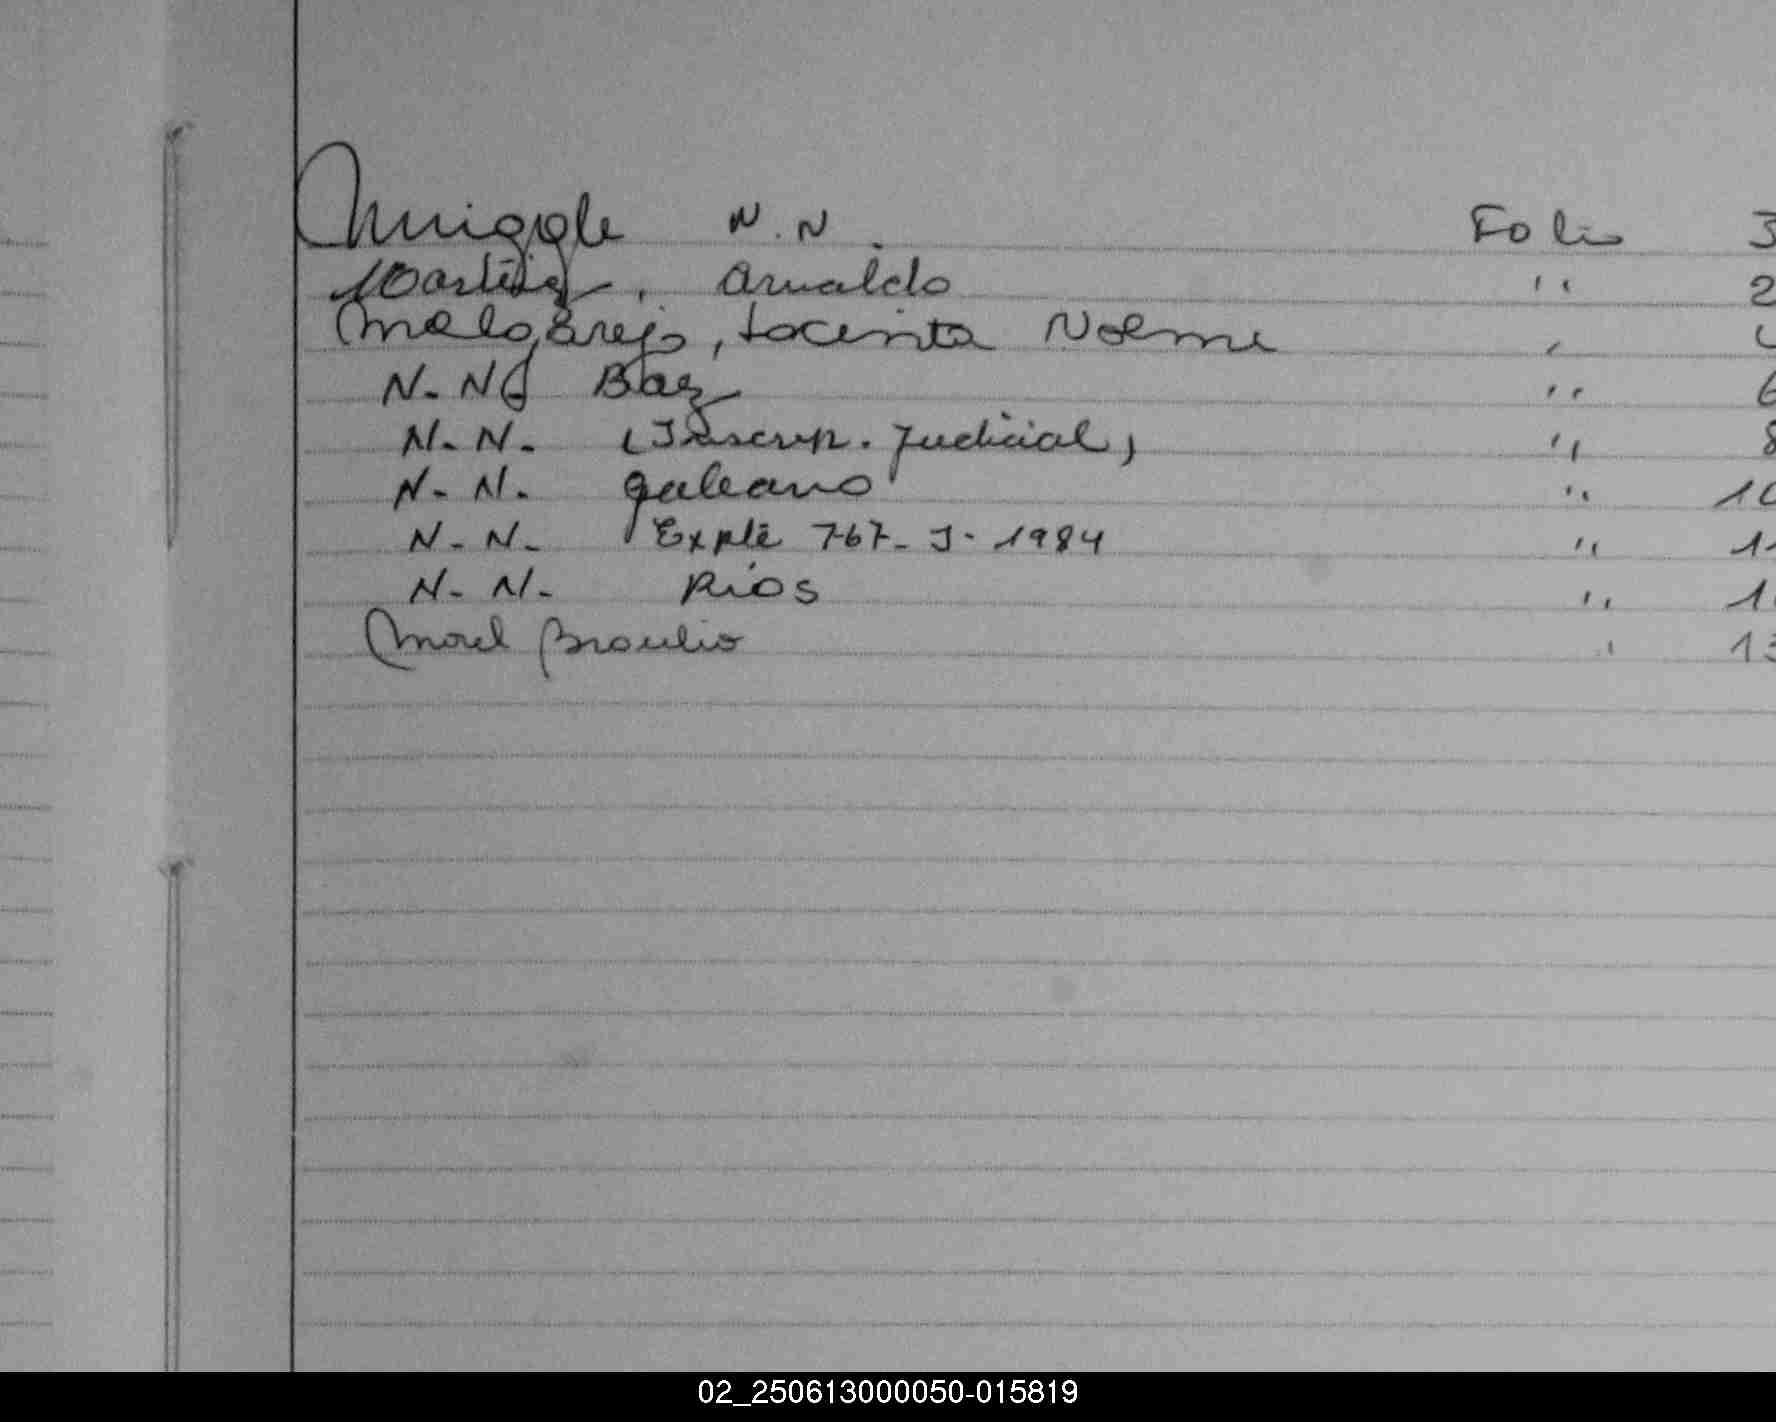 Muiggle N.N. Folio 3
Martinez, Arnaldo '' 2
Melgarejo, Jacinta Noemi ''
N.N. Baez '' 6
N.N. (Inscrip. Judicial) '' 8
N.N. Galeano '' 10
N.N. Expte 767-J-1984 '' 11
N.N. Rios '' 1
Morel Braulio '' 13
02_250613000050-015819